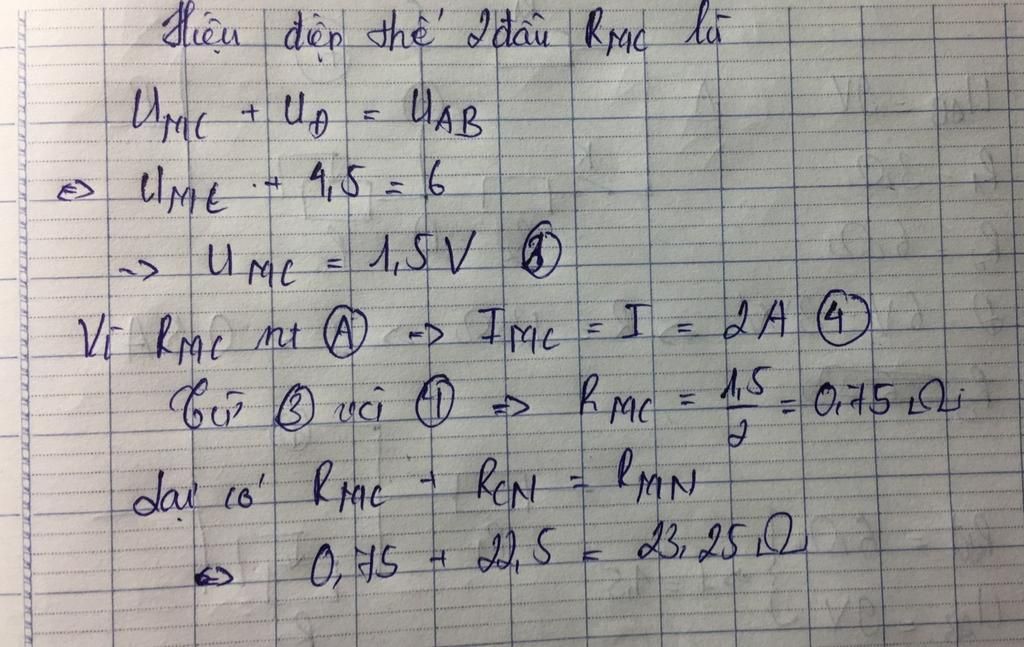 Hiệu điện thế 2 đầu RMC là
UMC + UĐ = UAB
<=> UMC + 4,5 = 6
-> UMC = 1,5 V ③
Vì RMC nt Ⓐ => IMC = I = 2A ④
Từ ③ và ④ => RMC = 1,5/2 = 0,75 Ω
lại có RMC + RCN = RMN
<=> 0,75 + 22,5 = 23,25 Ω